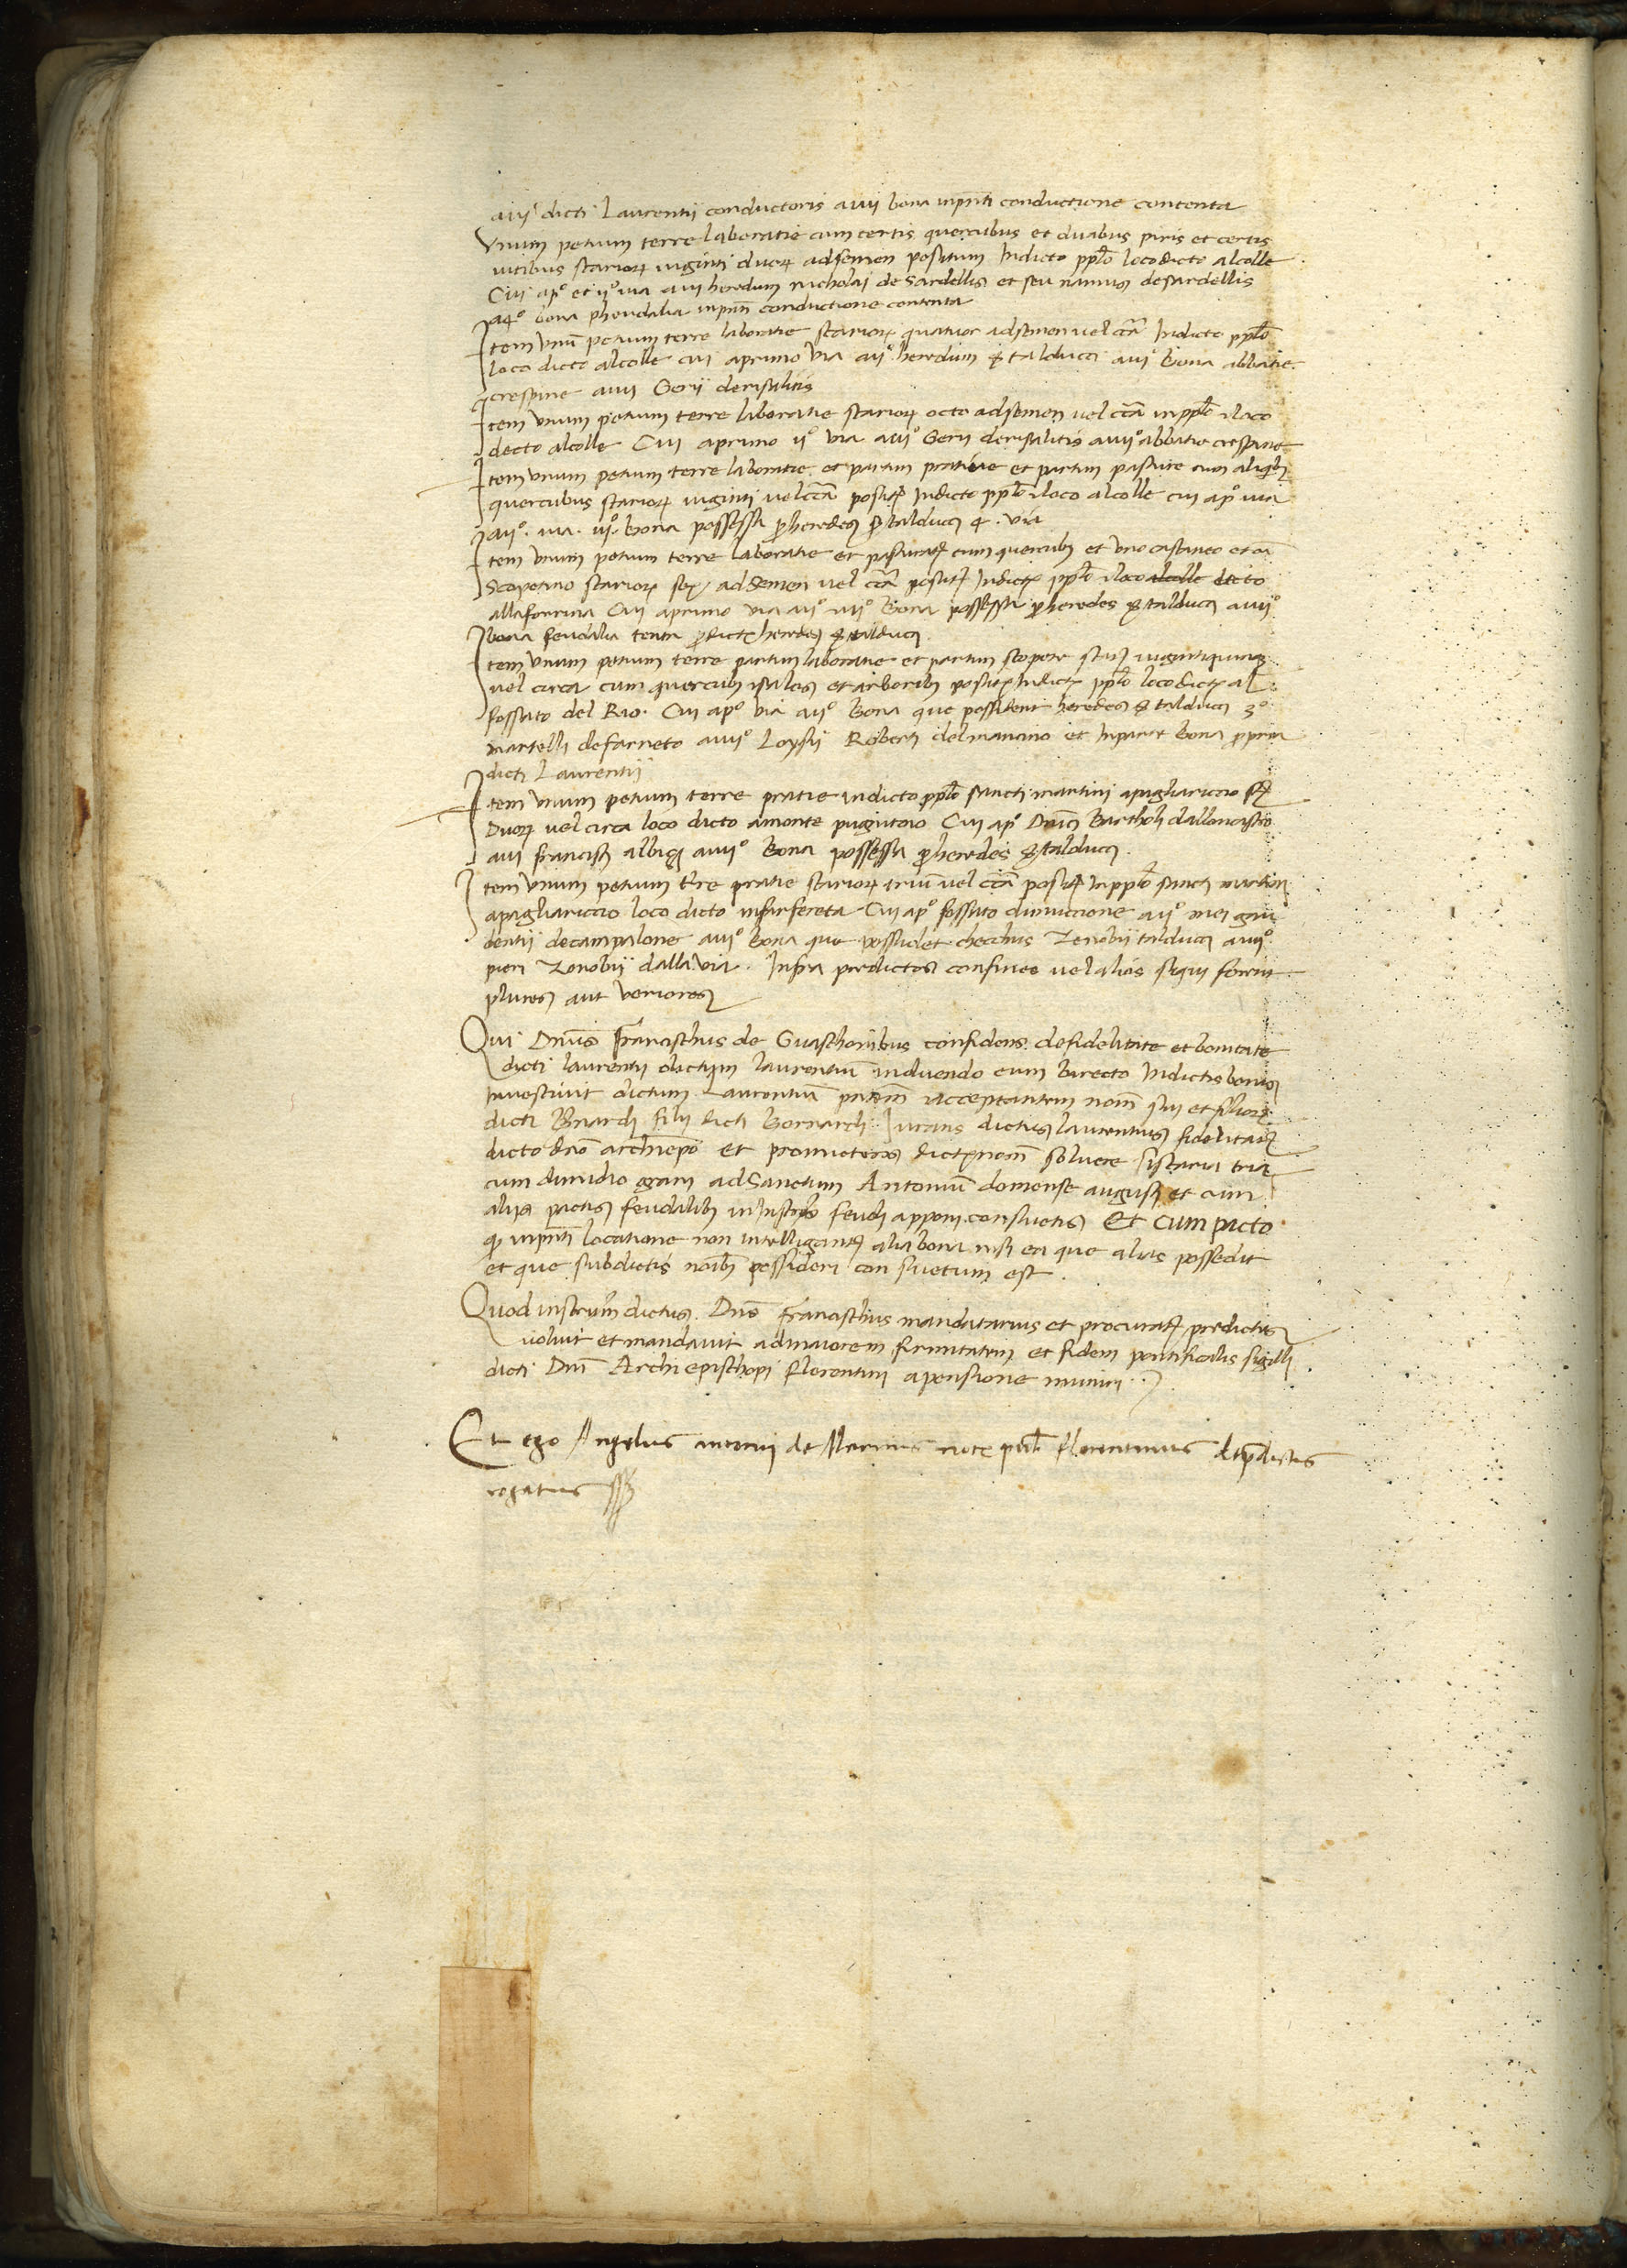 aiij dicti Laurentij conductoris aiiij bona inpnti conductione contenta
Vnum petium terre laboratie cum certis quercubus et duabus piris et certis
vitibus starior viginti duor ad semen positum Indicto pplo loco dicto alcolle
Cui apº et ijº via aiij heredum nicholai de Sardellis et seu nannis de sardellis
a4º bona pheudalia inpnti conductione contenta
Item vnū petium terre laboratie starior quatuor ad semen vel cca Indicto pplo
loco dicto alcolle cui aprimo via aijº heredum talducci aiijº bona abbatie
crespine aiiij Gerij derisalitis
Item vnum petium terre laboratie starior octo ad semen vel cca in pplo loco
decto alcolle Cui aprimo ijº via aiijº Gerij derisalitis aiiijº abbatie crespine
Item vnum petium terre laboratie et partim pratiue et partim pasture cum aliqb
quercubus starior viginti vel cca posit Indicto pplo loco alcolle cui apº via
aijº via iijº bona possessa p heredes talducci 4 via
Item vnum petium terre laboratie et pasturat cum quercub et vno castaneo et cū
Scopetino starior sex ad semen vel cca posit Indicto pplo loco alcolle decto
alla fornina Cui aprimo via aijº aiijº bona possessa p heredes talducci aiiijº
bona feudalia tenta p dictos heredes talducci
Item vnum petium terre partim laboratie et partim scopete star viginti quinq
vel circa cum quercub salas et arborib posit Indicto pplo loco dicto al
fossato del Rio Cui apº via aijº bona que possident heredes talducci 3º
martelli de farneto aiiijº Loysij Roberti del mancino et Inparte bona propria
dicti Laurentij
Item vnum petium terre pratie indicto pplo sancti martini apagliariccio st
Duor vel circa loco dicto amonte pugitoio Cui apº Dnici Bartholi dalloncastro
aiij francisci albizi aiiijº bona possessa p heredes talducci
Item vnum petium tre pratie starior triu vel cca posit In pplo sancti martini
apagliariccio loco dicto infarfereta Cui apº fossato dimuccione aijº mei gau
dentij de campalone aiijº bona que possidet checchus Zenobij talducci aiiijº
pieri Zenobij dalla via. Infra predictos confines vel alios siqui forent
plures aut veriores
Qui Dnus Francischus de Guaschonibus confidens de fidelitate et bonitate
dicti laurentij dictum laurentium induendo eum birecto Indictis bonis
Inuestiuit dictum Laurentiū pntem acceptantem nom sui et filior
dicti Bnardi filij dicti Bernardi Iurans dictus laurentius fidelitate
dicto dno archiepo et promictens dicto nom soluere staria tria
cum dimidio grani ad Sanctum Antoniū de mense augusti et cum
alijs pactis feudalib in Instro feudi apponi consuetis Et cum pacto
q inpnti locatione non intelligant alia bona nisi ea que alias possedit
et que subdictis noib possideri con suetum est.
Quod instrum dictus Dns Francischus mandatarius et procurat predictus
voluit et mandauit ad maiorem firmitatem et fidem pontificalis sigilli
dicti Dni Archi epischopi florentini apensione muniri
Et ego Angelus antonij de not publ florentinus de pdictis
rogatus